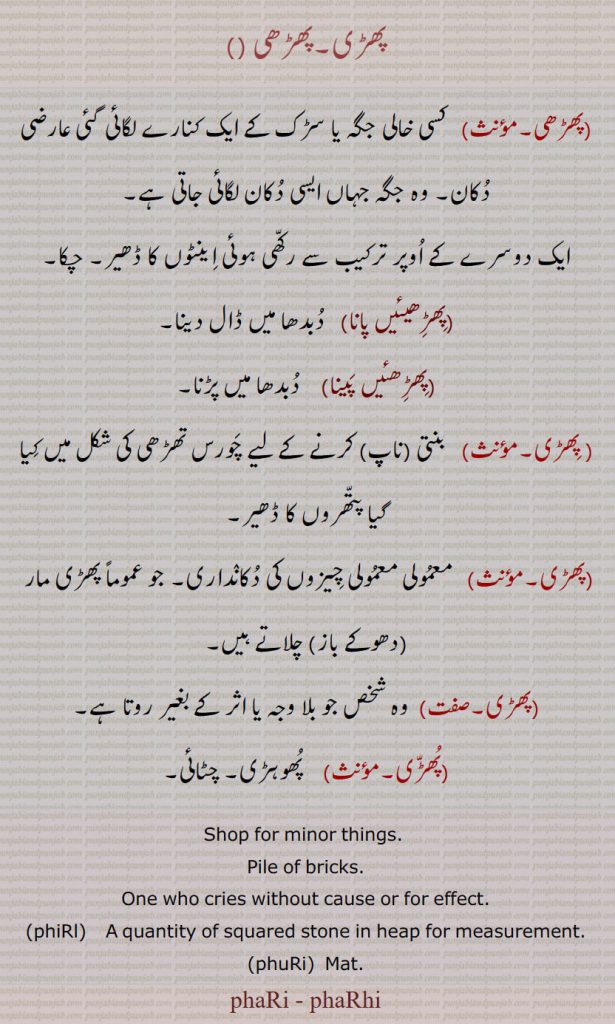 پھڑی۔پھڑھی ()
(پھڑھی۔مؤنث) کسی خالی جگہ یا سڑک کے ایک کنارے لگائی گئی عارضی
دُکان۔ وہ جگہ جہاں ایسی دُکان لگائی جاتی ہے۔
ایک دوسرے کے اُوپر ترکیب سے رکھّی ہوئی اِینٹوں کا ڈھیر۔ چکا۔
(پھڑِھیئیں پانا) دُبدھا میں ڈال دینا۔
(پھڑِھئیں پَینا) دُبدھا میں پڑنا۔
(پِھڑی۔مؤنث) بنتی (ناپ) کرنے کے لیے چَورس تھڑھی کی شکل میں کِیا
گیا پتّھروں کا ڈھیر۔
(پھڑی۔مؤنث) معمُولی معمُولی چِیزوں کی دُکانداری۔ جو عموماً پھڑی مار
(دھوکے باز) چلاتے ہیں۔
(پھڑی۔صفت) وہ شخص جو بلا وجہ یا اثر کے بغیر روتا ہے۔
(پُھڑّی۔مؤنث) پُھوہڑی۔ چٹائی۔
Shop for minor things.
Pile of bricks.
One who cries without cause or for effect.
(phiRl) A quantity of squared stone in heap for measurement.
(phuRi) Mat.
phaRi - phaRhi